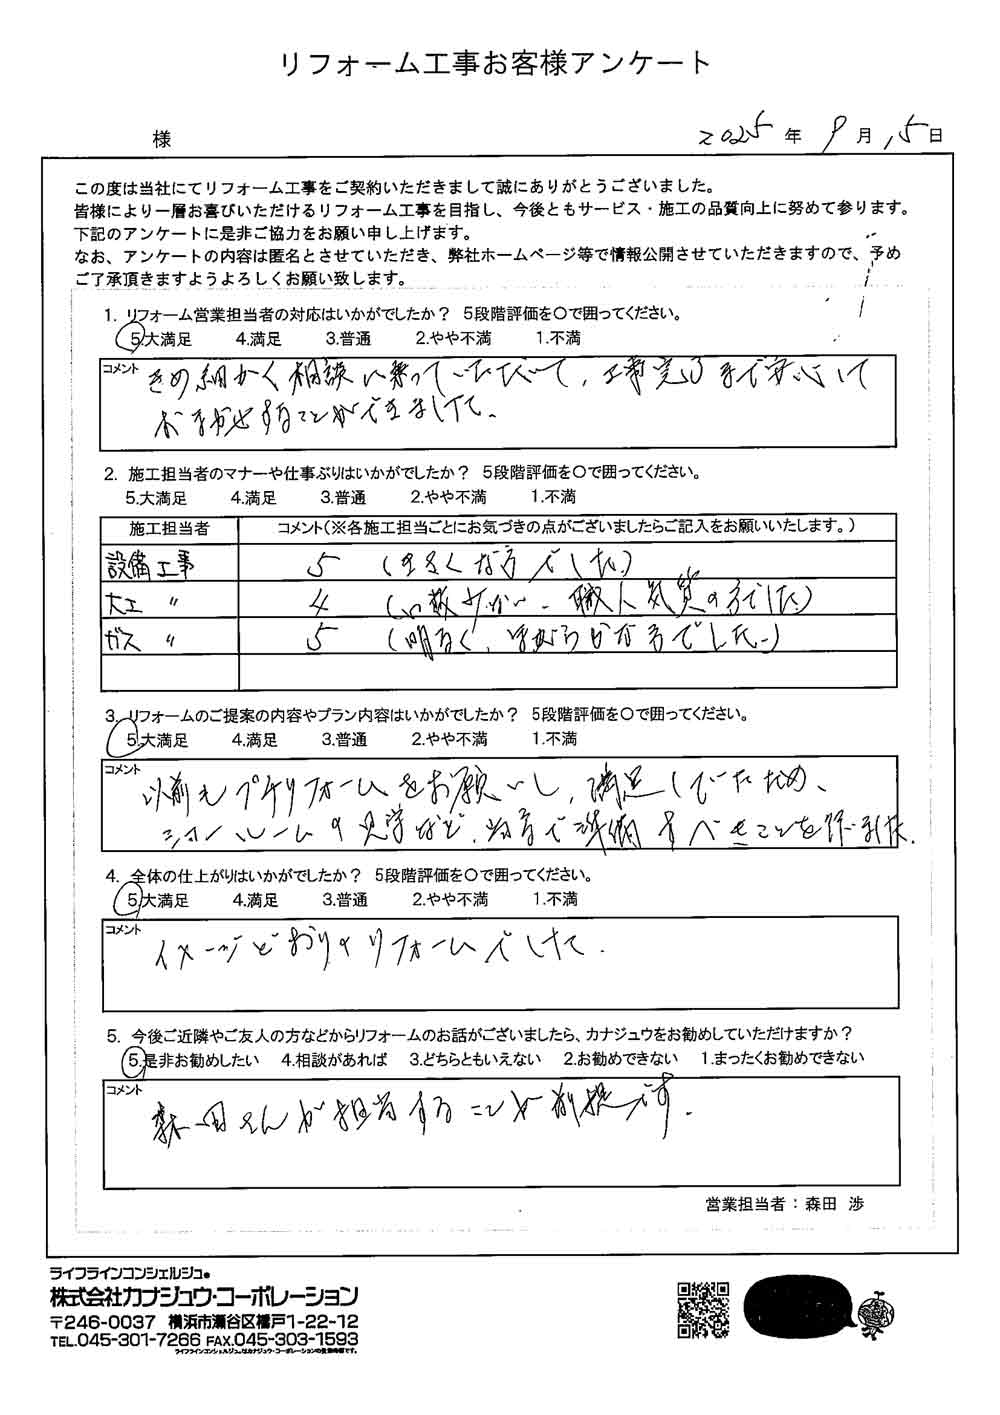 リフォーム工事お客様アンケート
様
2025年 9月 15日
この度は当社にてリフォーム工事をご契約いただきまして誠にありがとうございました。
皆様により一層お喜びいただけるリフォーム工事を目指し、今後ともサービス・施工の品質向上に努めて参ります。
下記のアンケートに是非ご協力をお願い申し上げます。
なお、アンケートの内容は匿名とさせていただき、弊社ホームページ等で情報公開させていただきますので、予め
ご了承頂きますようよろしくお願い致します。
1. リフォーム営業担当者の対応はいかがでしたか？ 5段階評価を〇で囲ってください。
5.大満足 4.満足 3.普通 2.やや不満 1.不満
コメント
きめ細かく相談に乗っていただいて、工事完了まで安心して
おまかせすることができました。
2. 施工担当者のマナーや仕事ぶりはいかがでしたか？ 5段階評価を〇で囲ってください。
5.大満足 4.満足 3.普通 2.やや不満 1.不満
施工担当者 コメント(※各施工担当ごとにお気づきの点がございましたらご記入をお願いいたします。)
設備工事 5 (きさくな方でした)
大工 〃 4 (口数少ない、職人気質の方でした)
ガス 〃 5 (明るく、ほがらかな方でした)
3. リフォームのご提案の内容やプラン内容はいかがでしたか？ 5段階評価を〇で囲ってください。
5.大満足 4.満足 3.普通 2.やや不満 1.不満
コメント
以前もプチリフォームをお願いし、満足していたため、
ショールームの見学など、当方で準備すべきことを
4. 全体の仕上がりはいかがでしたか？ 5段階評価を〇で囲ってください。
5.大満足 4.満足 3.普通 2.やや不満 1.不満
コメント
イメージどおりのリフォームでした。
5. 今後ご近隣やご友人の方などからリフォームのお話がございましたら、カナジュウをお勧めしていただけますか？
5.是非お勧めしたい 4.相談があれば 3.どちらともいえない 2.お勧めできない 1.まったくお勧めできない
コメント
森田さんが担当することが前提です。
営業担当者：森田 渉
ライフラインコンシェルジュ®
株式会社カナジュウ・コーポレーション
〒246-0037 横浜市瀬谷区橋戸1-22-12
TEL.045-301-7266 FAX.045-303-1593
ライフラインコンシェルジュ®はカナジュウ・コーポレーションの登録商標です。